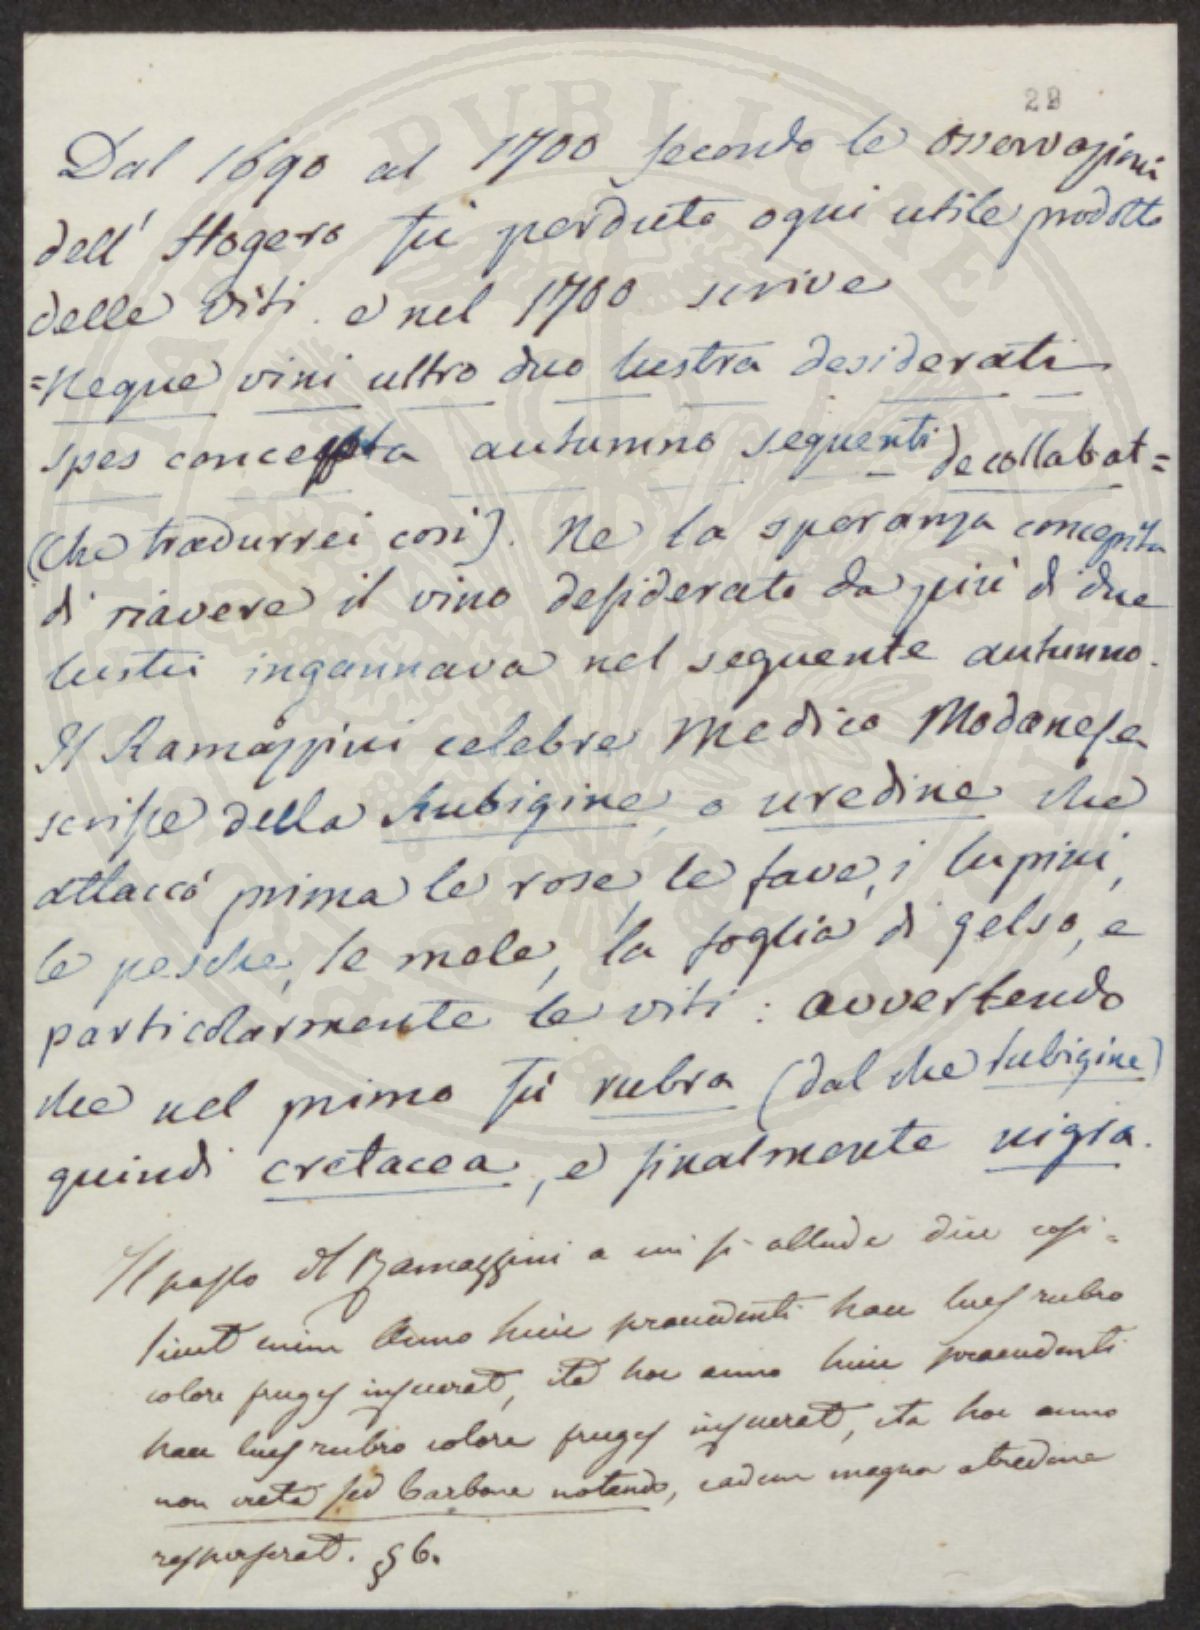 29
Dal 1690 al 1700 secondo le osservazioni
dell' Hogero fù perduto ogni utile prodotto
delle viti e nel 1700 scrive
=Neque vini ultro duo lustra desiderati
spes concepta autumno sequenti decollabat=
(che tradurrei così). Ne la speranza concepita
di riavere il vino desiderato da più di due
lustri ingannava nel seguente autunno.
Il Ramazzini celebre Medico Modanese
scrisse della Rubigine, o uredine che
attaccò prima le rose, le fave, i lupini,
le pesche, le mele, la foglia di gelso, e
particolarmente le viti: avvertendo
che nel primo fù rubra (dal che rubigine)
quindi cretacea, e finalmente nigra.
Il passo del Ramazzini a cui si allude dice così=
sicut enim Anno huic praecedenti haec lues rubro
colore fruges infecerat, ita hoc anno huic praecedenti
haec lues rubro colore fruges infecerat, ita hoc anno
non creta sed Carbone notando, eadem magna atredine
resperserat. § 6.
PUBLICAE